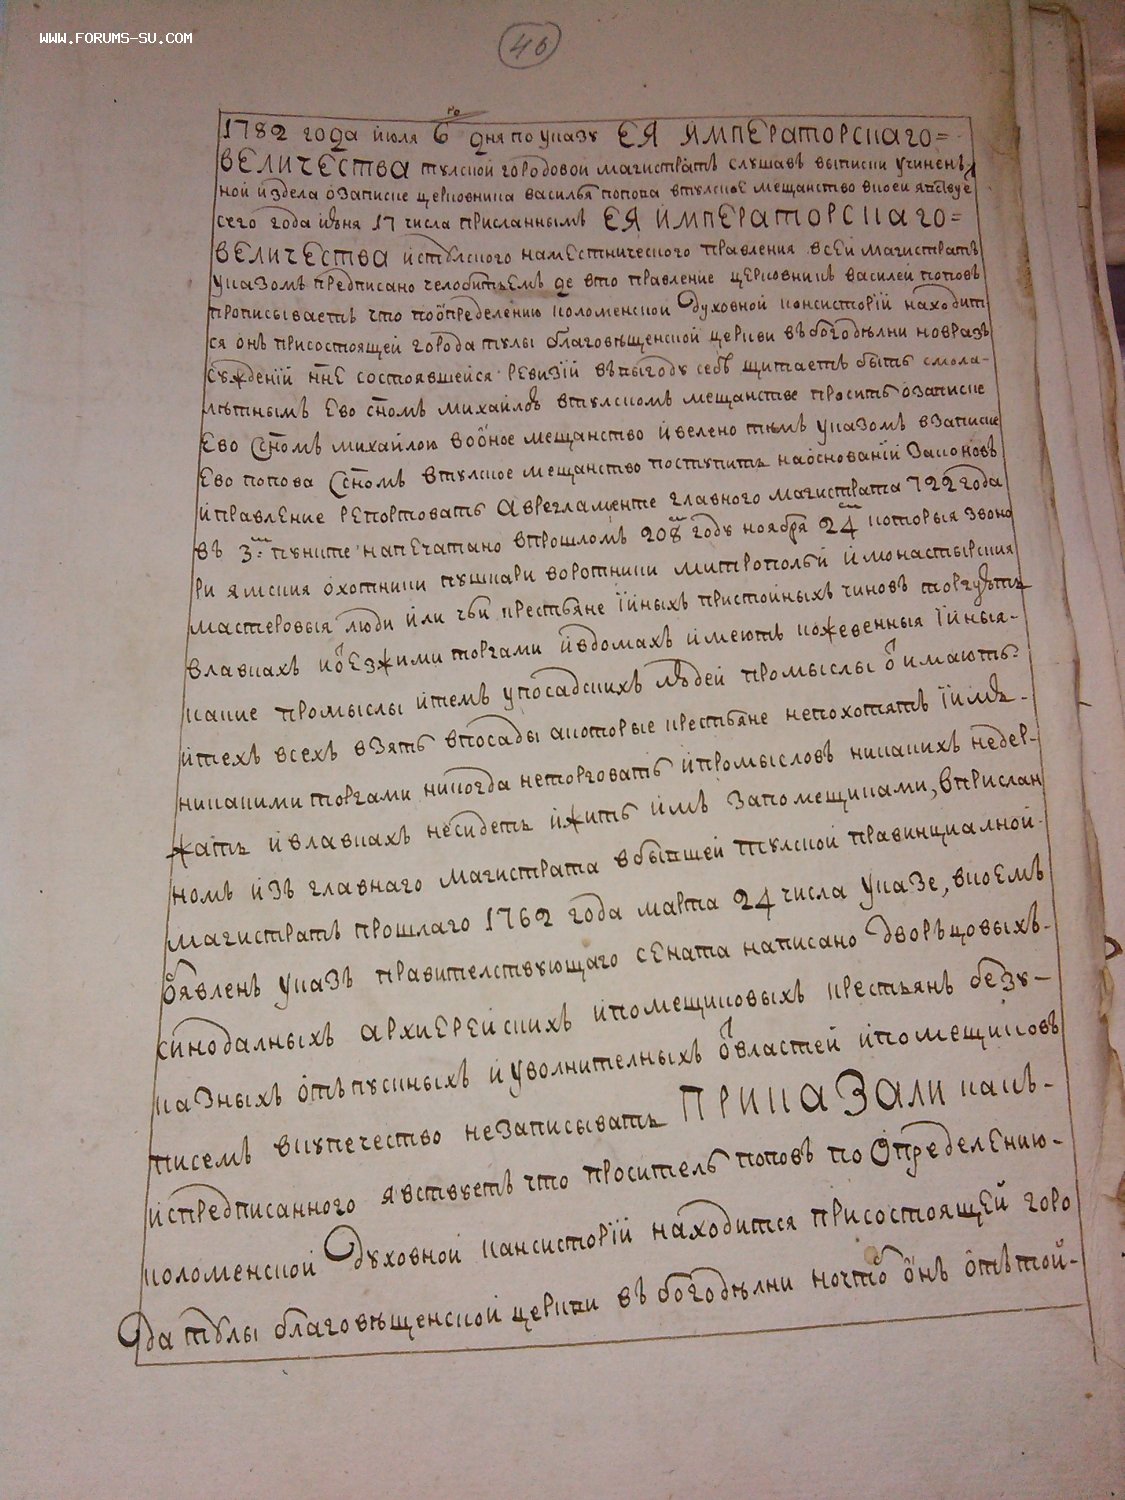 WWW.FORUMS-SU.COM
46
1782 года июля 6 го дня по указу ЕЯ ИМПЕРАТОРСКАГО=
ВЕЛИЧЕСТВА тулской городовой магистратъ слушавъ выписки учинен
ной издела озаписке церковника василья попова втулское мещанство вкоей явствуе
сего года июня 17 числа присланнымъ ЕЯ ИМПЕРАТОРСКАГО=
ВЕЛИЧЕСТВА истулского наместнического правления всей магистратъ
указомъ предписано челобитьемъ де вто правление церковникъ василей поповъ
прописываетъ что поопределению коломенской духовной консистории находит
ся онъ присостоящей города тулы благовѣщенской церкви въбогодѣлни новразъ
суждении нне состоявшейся ревизии ввыгоду себѣ щитаетъ быть смола-
лѣтнымъ ево сномъ михайлою втулскомъ мещанстве проситъ озаписке
ево ссномъ михайлою воное мещанство ивелено тѣмъ указомъ взаписке
ево попова ссномъ втулское мещанство поступить наосновании законовъ
иправление репортовать аврегламенте главного магистрата 722 года
въ 3м: пункте напечатано впрошломъ 208м году ноября 24 которыя звоно
ри ямския охотники пушкари воротники митропольи имонастырския
мастеровыя люди или чьи крестьяне ииныхъ пристойныхъ чиновъ торгуютъ
влавкахъ иотезжими торгами ивдомахъ имеютъ кожевенныя ииныя-
какие промыслы итемъ упосадскихъ людей промыслы отимаютъ:
итехъ всехъ взять впосады акоторые крестьяне непохотятъ иимъ-
никакими торгами никогда неторговать ипромысловъ никакихъ недер-
жать ивлавкахъ несидеть ижить имъ запомещиками, вприслан
номъ изъ главнаго магистрата вбывшей тулской правинциалной
магистратъ прошлаго 1762 года марта 24 числа указе, вкоемъ
обявленъ указъ правителствующаго сената написано дворцовыхъ-
синодалныхъ архиерейскихъ ипомещиковыхъ крестьянъ безу-
казныхъ отъпускныхъ иуволнителныхъ отвластей ипомещиковъ
писемъ вкупечество незаписывать ПРИКАЗАЛИ какъ-
испредписанного явствуетъ что проситель поповъ по определению-
коломенской духовной кансистории находится присостоящей горо
да тулы благовѣщенской церкви въ богодѣлни ночто онъ отътой-